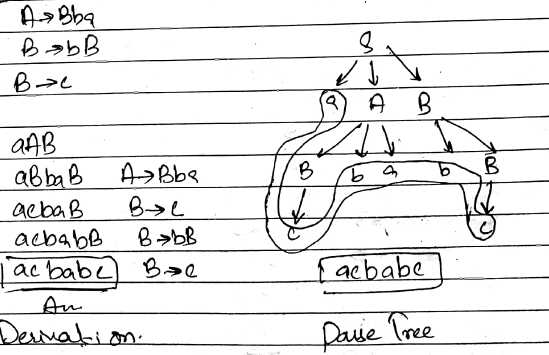 A→Bba
B→bB
B→c
aAB
aBbaB A→Bba
acbaB B→c
acbabB B→bB
acbabc B→c
An
Derivation.
S
a A B
B b a b B
c c
acbabc
Parse Tree